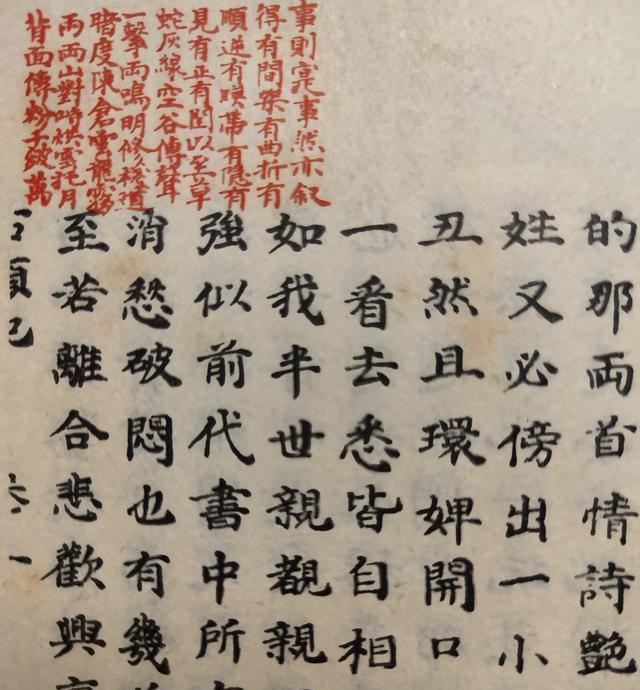 事則寔事然亦叙
得有間架有曲折有
順逆有映帶有隱有
見有正有閏以至草
蛇灰線空谷傳聲
一擊兩鳴明修棧道
暗度陳倉雲龍霧
雨兩山對峙烘雲托月
背面傳粉千皴萬
的那兩首情詩艷
姓又必傍出一小
丑然且環婢開口
一看去悉皆自相
如我半世親覩親
強似前代書中所
消愁破悶也有幾
至若離合悲歡興
石頭記
卷一